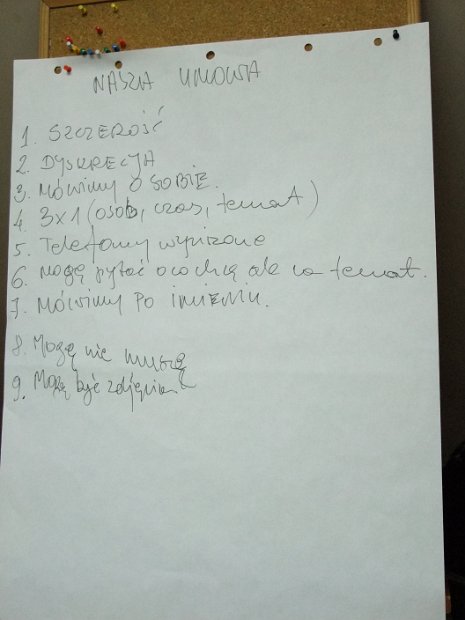 NASZA UMOWA
1. SZCZEROŚĆ
2. DYSKRECJA
3. MÓWIMY O SOBIE.
4. 3x1 (osob, czas, temat)
5. Telefony wyciszone
6. Mogę pytać o co chcą ale na temat.
7. MÓWIMY PO IMIENIU.
8. Mogę nie muszę
9. Mogą być zdjęcia